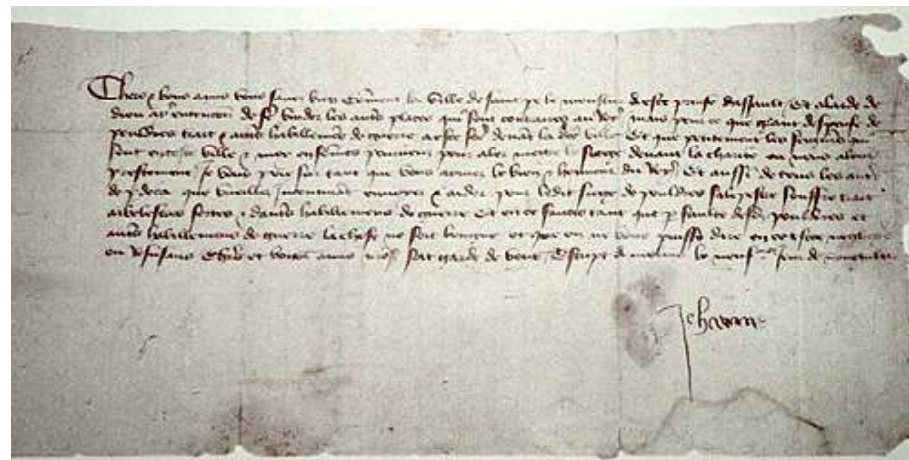 Chers et bons amis vous savez bien comment la ville de saint pere le moustier a esté prinse dassault Et a laide de
dieu ay entencion de faire vuider les autres places qui sont contraires au Roy mais pour ce que grant despense de
pouldres trait et autres habillemens de guerre a esté faicte devant la dicte ville Et que petitement les seigneurs qui
sont en ceste ville et moy en sommes pourveuz pour aler mectre le siege devant la charité ou nous alons
prestement Je vous prie sur tant que vous aymez le bien et honneur du Roy Et aussi de tous les autres
de par deca que vueillez incontinent envoyer et aider pour ledit siege de pouldres salepestre souffre trait
arbelestres fortes et dautres habillemens de guerre Et en ce faictes tant que par faulte desdictes pouldres et
autres habillemens de guerre la chose ne soit longue et que on ne vous puisse dire en ce estre negligens
ou refusans Chers et bons amis nostre sire soit garde de vous Escript a molins le neufviesme jour de novembre
Jehanne